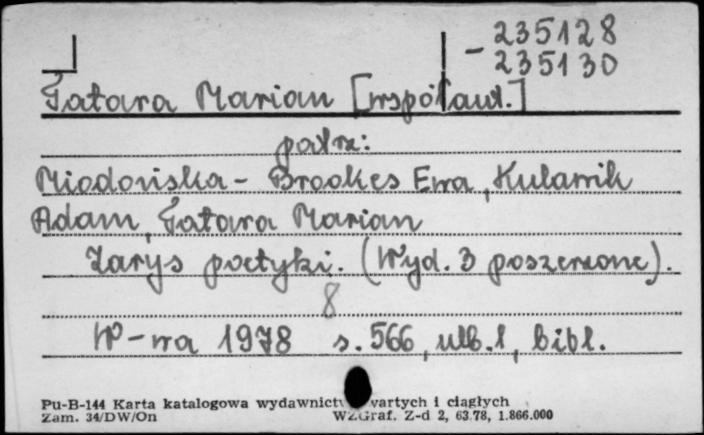 - 235128
235130
Tatara Marian [współaut.]
patrz:
Miodońska - Brookes Ewa, Kulawik
Adam, Tatara Marian
Zarys poetyki. (Wyd. 3 poszerzone).
8
W-wa 1978 s. 566, ulb. 1, bibl.
Pu-B-144 Karta katalogowa wydawnictw zwartych i ciągłych
Zam. 34/DW/On WZGraf. Z-d 2, 63.78, 1.866.000